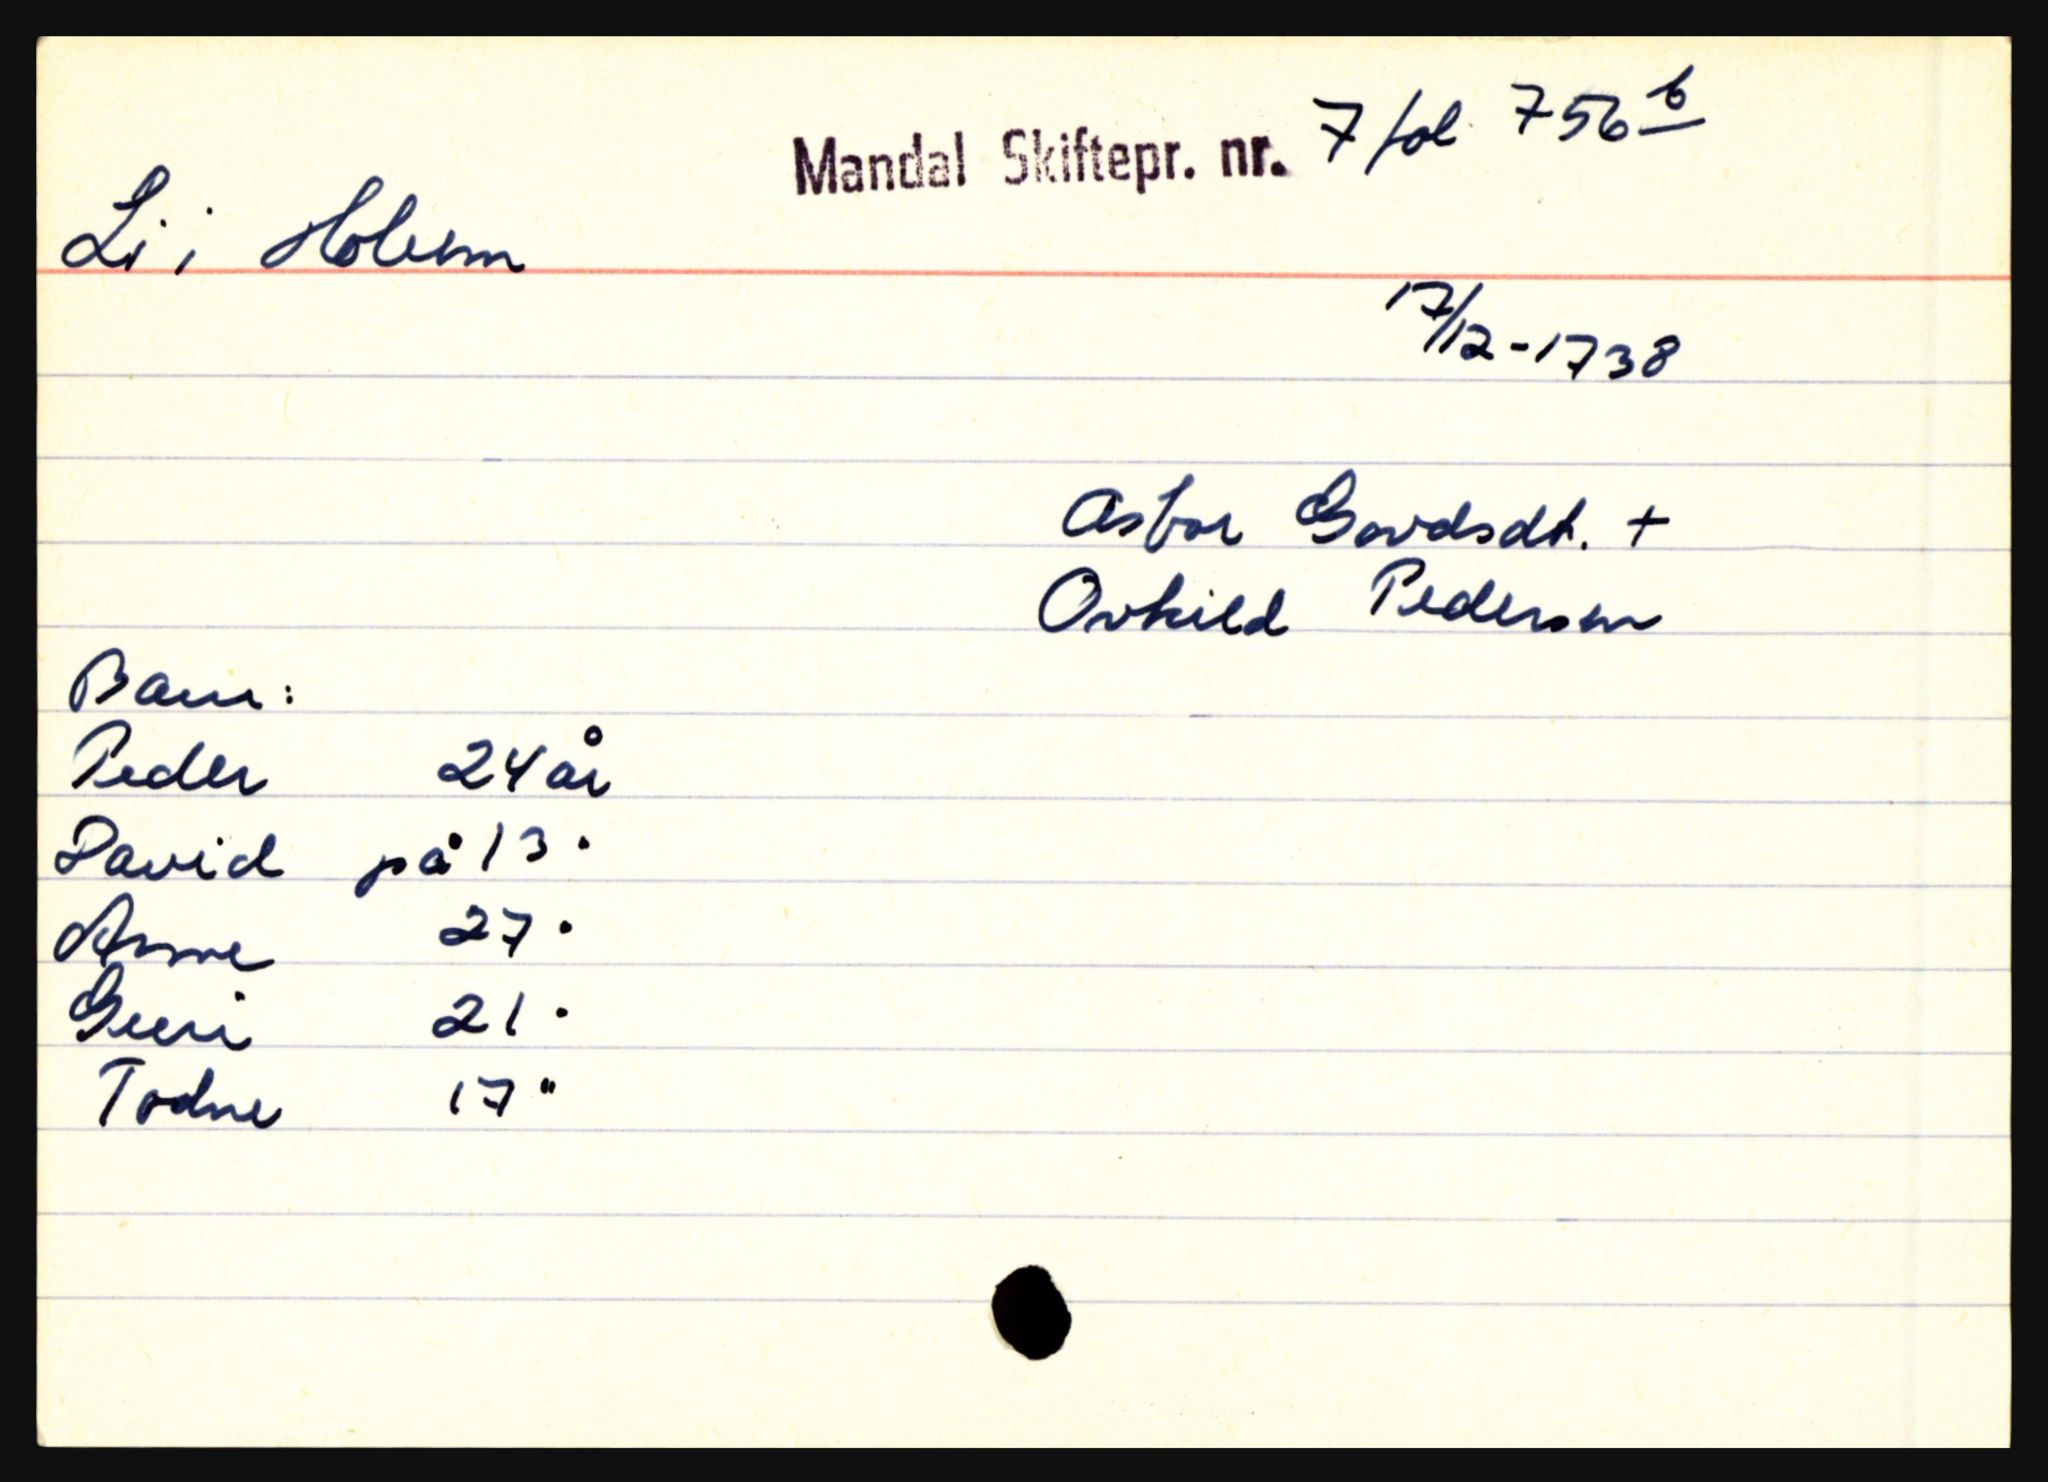 Mandal Skiftepr. nr. 7 fol 756 b
Li i Holum
17/12-1738
Asbor Govdsdt. +
Ovkild Pedersen
Barn:
Peder 24 år
David på 13 "
Anne 27 "
Guri 21 "
Todne 17 "